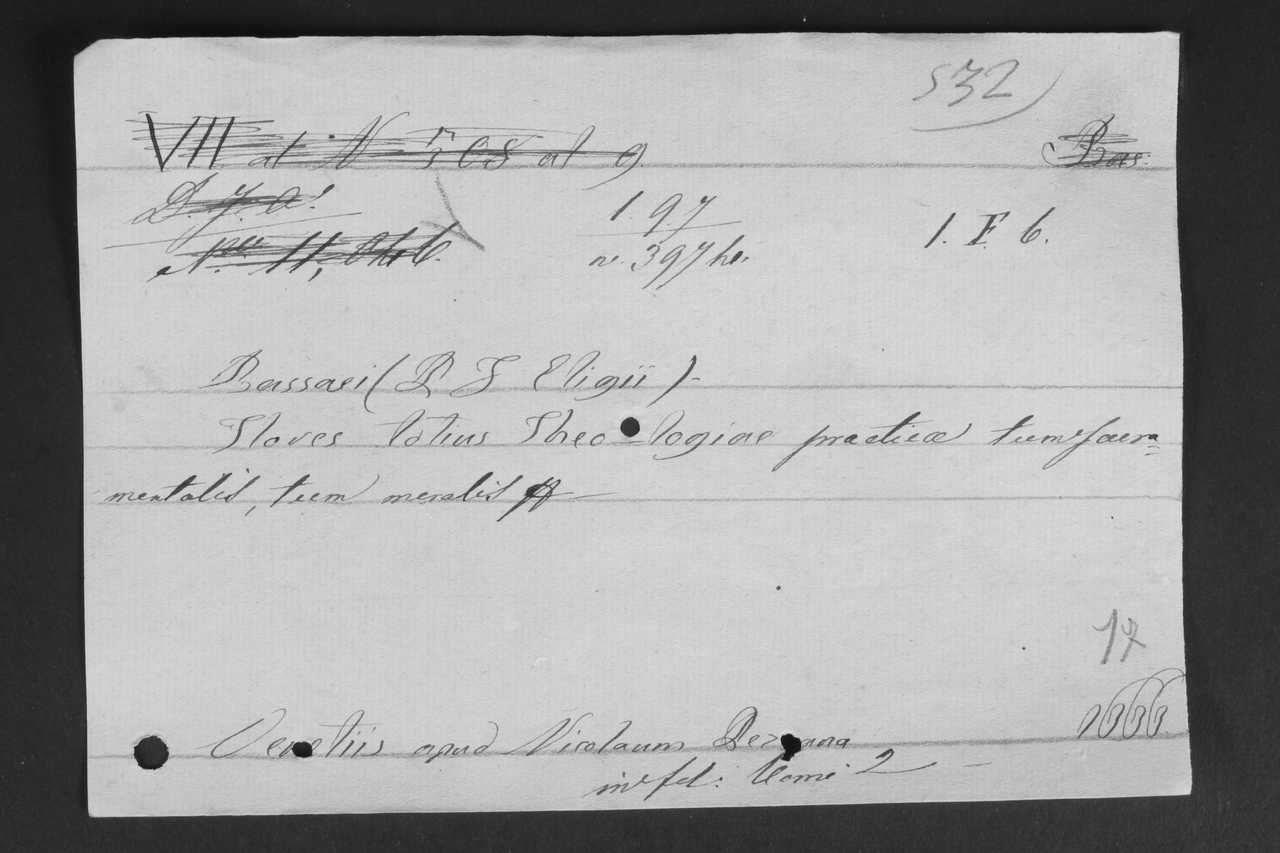 532
VII at N 508 al 9. Bas:
D. J. a!
1. 97
N. 11, 1. F. 6.
n. 397 hi.
Bassaei (P F Eligii)-
Flores totius Theo logiae practicæ tum sacra=
mentalis, tum moralis
17
Venetiis apud Nicolaum Pezzana 1666.
in fol: Tomi 2 -